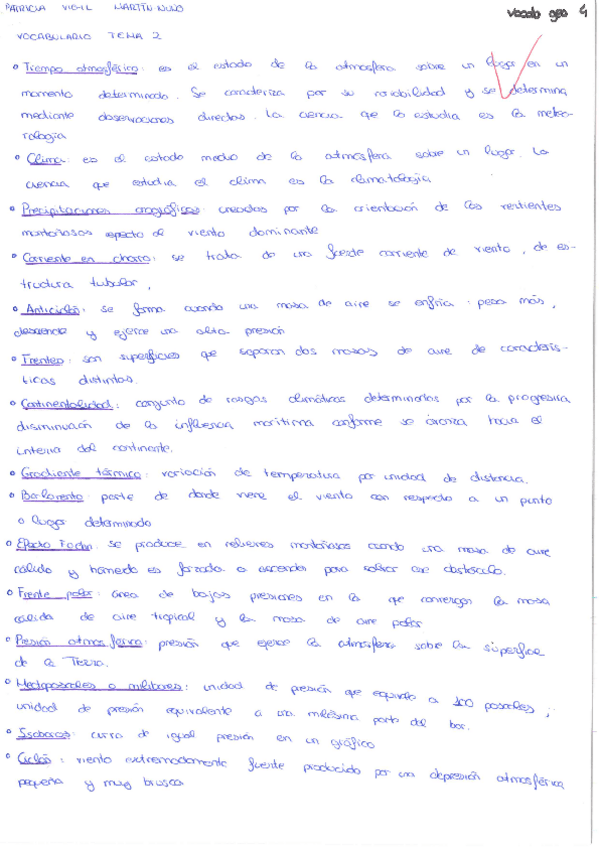 PATRICIA VIGIL MARTÍN NUÑO
vocab geo 4
VOCABULARIO TEMA 2
Tiempo atmosférico: es el estado de la atmosfera sobre un lugar en un
momento determinado. Se caracteriza por su variabilidad y se determina
mediante observaciones directas. La ciencia que la estudia es la meteo-
rología
Clima: es el estado medio de la atmosfera sobre un lugar. La
ciencia que estudia el clima es la climatología.
Precipitaciones orográficas: creadas por la orientación de las vertientes
montañosas respecto al viento dominante
Corriente en chorro: se trata de una fuerte corriente de viento, de es-
tructura tubular,
Anticiclón: se forma cuando una masa de aire se enfría: pesa más,
desciende y ejerce una alta presión
Frentes: son superficies que separan dos masas de aire de caracterís-
ticas distintas.
Continentalidad: conjunto de rasgos climáticos determinados por la progresiva
disminución de la influencia marítima conforme se avanza hacia el
interior del continente.
Gradiente térmico: variación de temperatura por unidad de distancia.
Barlovento: parte de donde viene el viento con respecto a un punto
o lugar determinado
Efecto Foehn: se produce en relieves montañosos cuando una masa de aire
cálido y húmedo es forzada a ascender para salvar ese obstáculo.
Frente polar: área de bajas presiones en la que convergen la masa
cálida de aire tropical y la masa de aire polar
Presión atmosférica: presión que ejerce la atmósfera sobre la superficie
de la Tierra.
Hectopascales o milibares: unidad de presión que equivale a 100 pascales;
unidad de presión equivalente a una milésima parte del bar.
Isobaras: curva de igual presión en un gráfico
Ciclón: viento extremadamente fuerte producido por una depresión atmosférica
pequeña y muy brusca